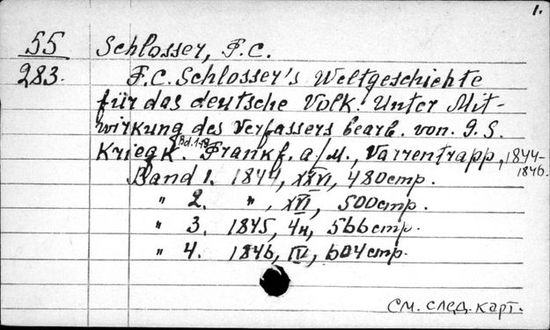 1.
55 Schlosser, F.C.
283. F.C. Schlosser's Weltgeschichte
für das deutsche Volk. Unter Mit-
wirkung des Verfassers bearb. von. G.S.
Kriegk. Frankf. a/M., Varrentrapp, 1844-
1846.
Band 1. 1844, XXVI, 480стр.
" 2. ", XVI, 500стр.
" 3. 1845, 4н, 566стр.
" 4. 1846, IV, 604стр.
См. след. карт.